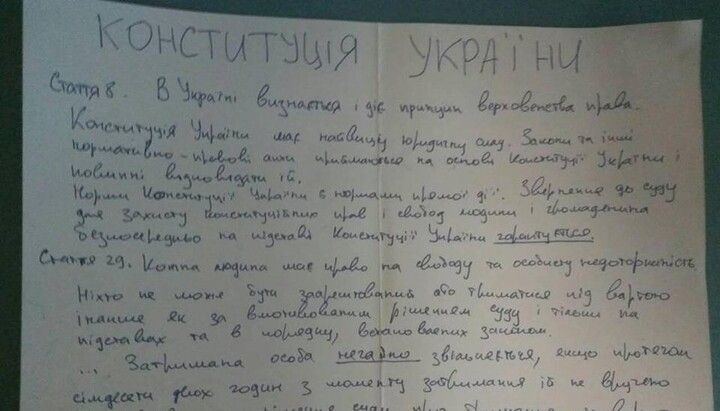 КОНСТИТУЦІЯ УКРАЇНИ
Стаття 8. В Україні визнається і діє принцип верховенства права.
Конституція України має найвищу юридичну силу. Закони та інші
нормативно-правові акти приймаються на основі Конституції України і
повинні відповідати їй.
Норми Конституції України є нормами прямої дії. Звернення до суду
для захисту конституційних прав і свобод людини і громадянина
безпосередньо на підставі Конституції України гарантується.
Стаття 29. Кожна людина має право на свободу та особисту недоторканість.
Ніхто не може бути заарештований або триматися під вартою
інакше як за вмотивованим рішенням суду і тільки на
підставах та в порядку, встановлених законом.
... Затримана особа негайно звільняється, якщо протягом
сімдесяти двох годин з моменту затримання їй не вручено